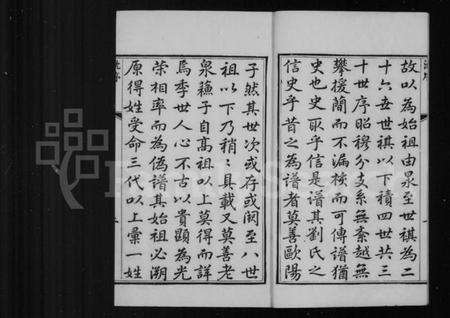 故以為始祖由泉至世祺為二
十六五世祺以下積四世共三
十世序昭穆分支系無紊越無
攀援簡而不漏揀而可傳譜猶
史也史取乎信是譜其劉氏之
信史乎昔之為譜者莫善歐陽
子然其世次或存或闕至八世
祖以下乃稍〻具載又莫善老
泉蘓子自高祖以上莫得而詳
焉季世人心不古以貴顕為光
榮相率而為偽譜其始祖必溯
原得姓受命三代以上彙一姓